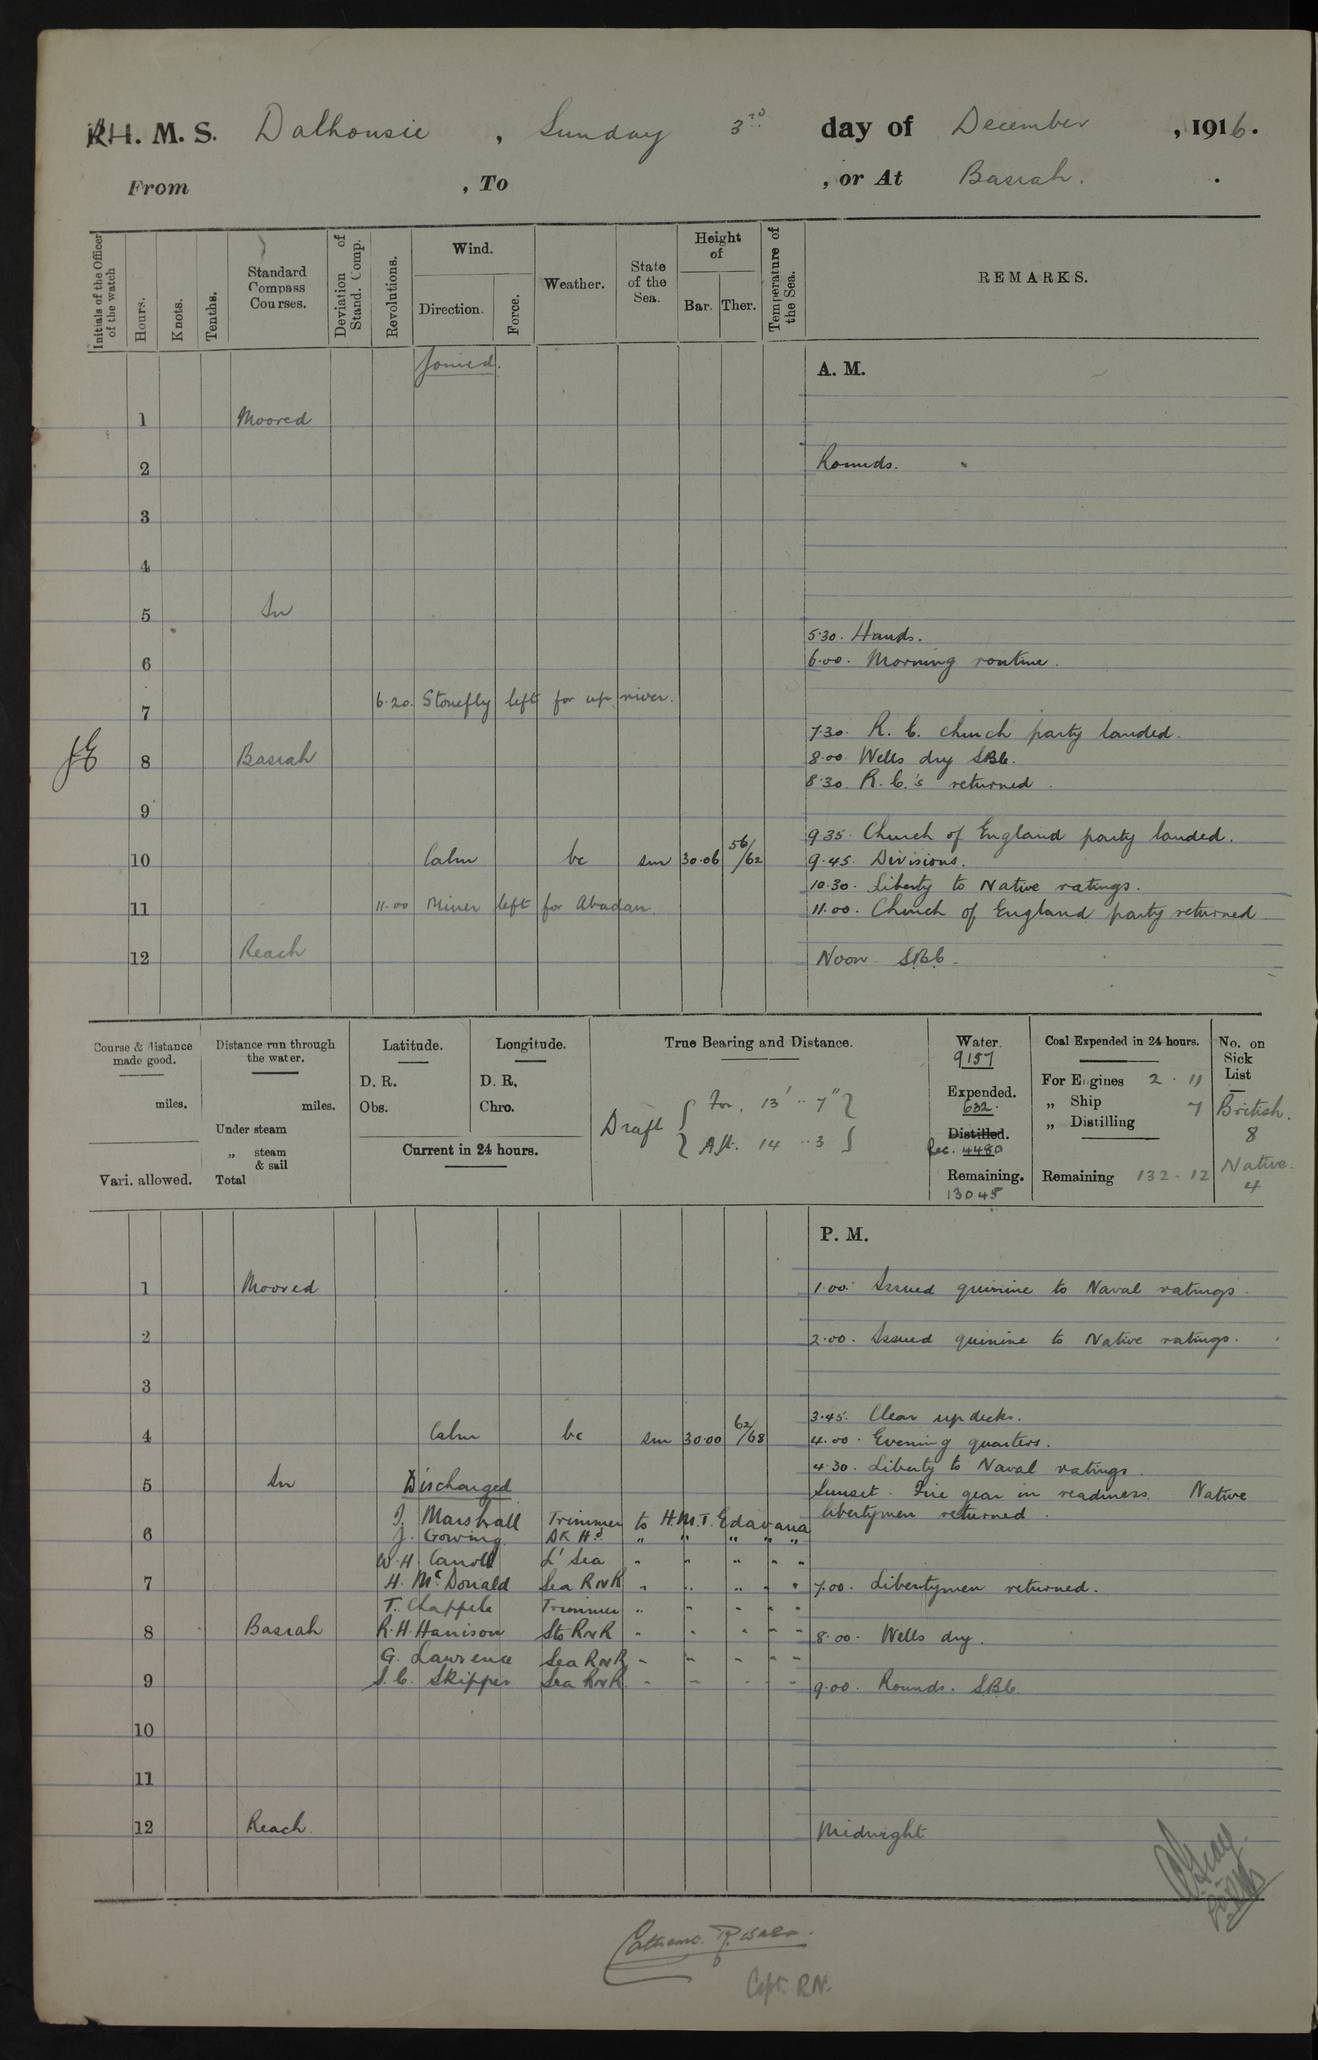 R.H. M. S. Dalhousie , Sunday 3rd day of December , 1916.
From , To , or At Basrah.
Initials of the Officer of the watch
Hours.
Knots.
Tenths.
Standard Compass Courses.
Deviation of Stand. Comp.
Revolutions.
Wind.
Direction.
Force.
Weather.
State of the Sea.
Height of
Bar. Ther.
Temperature of the Sea.
REMARKS.
Joined.
A. M.
1 Moored
2 Rounds.
3
4
5 In
5.30. Hands.
6 6.00. Morning routine.
6.20. Stonefly left for up river.
7
7.30. R. C. church party landed.
8 Basrah 8.00 Wells dry SBC.
8.30. R. C.'s returned.
9
9.35. Church of England party landed.
10 Calm bc sm 30.06 56/62 9.45. Divisions.
10.30. Liberty to Native ratings.
11 11.00 Miner left for Abadan. 11.00. Church of England party returned
12 Reach Noon SBC.
Course & distance made good.
miles.
Vari. allowed.
Distance run through the water.
miles.
Under steam
„ steam & sail
Total
Latitude.
D. R.
Obs.
Longitude.
D. R.
Chro.
Current in 24 hours.
True Bearing and Distance.
Draft { For. 13' .. 7" }
{ Aft. 14 .. 3 }
Water.
9157
Expended.
632.
Distilled.
Rec. 4480
Remaining.
13045
Coal Expended in 24 hours.
For Engines 2 . 11
„ Ship 7
„ Distilling
Remaining 132 . 12
No. on Sick List
British.
8
Native.
4
P. M.
1 Moored 1.00. Issued quinine to Naval ratings.
2 2.00. Issued quinine to Native ratings.
3
3.45. Clear up decks.
4 Calm bc sm 30.00 62/68 4.00. Evening quarters.
4.30. Liberty to Naval ratings.
5 In Discharged Sunset. Fire gear in readiness. Native
J. Marshall Trimmer to H.M.T. Edavana libertymen returned.
6 J. Gowing Dk Hd „ „ „ „ „
W. H. Carroll Ld Sea „ „ „ „ „
7 H. McDonald Sea RNR „ „ „ „ „ 7.00. Libertymen returned.
T. Chappele Trimmer „ „ „ „ „
8 Basrah R. H. Harrison Sto RNR „ „ „ „ „ 8.00. Wells dry.
G. Lawrence Sea RNR „ „ „ „ „
9 S. C. Skipper Sea RNR „ „ „ „ „ 9.00. Rounds. SBC.
10
11
12 Reach Midnight
Capt. RN.